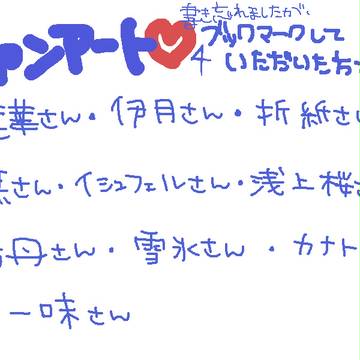 ァンアート
書き忘れましたがい
ブックマークして
いただいた方
華さん・伊月さん・折紙さ
さん・イシュフェルさん・浅上桜
丹さん・雪氷さん・カナト
一味さん